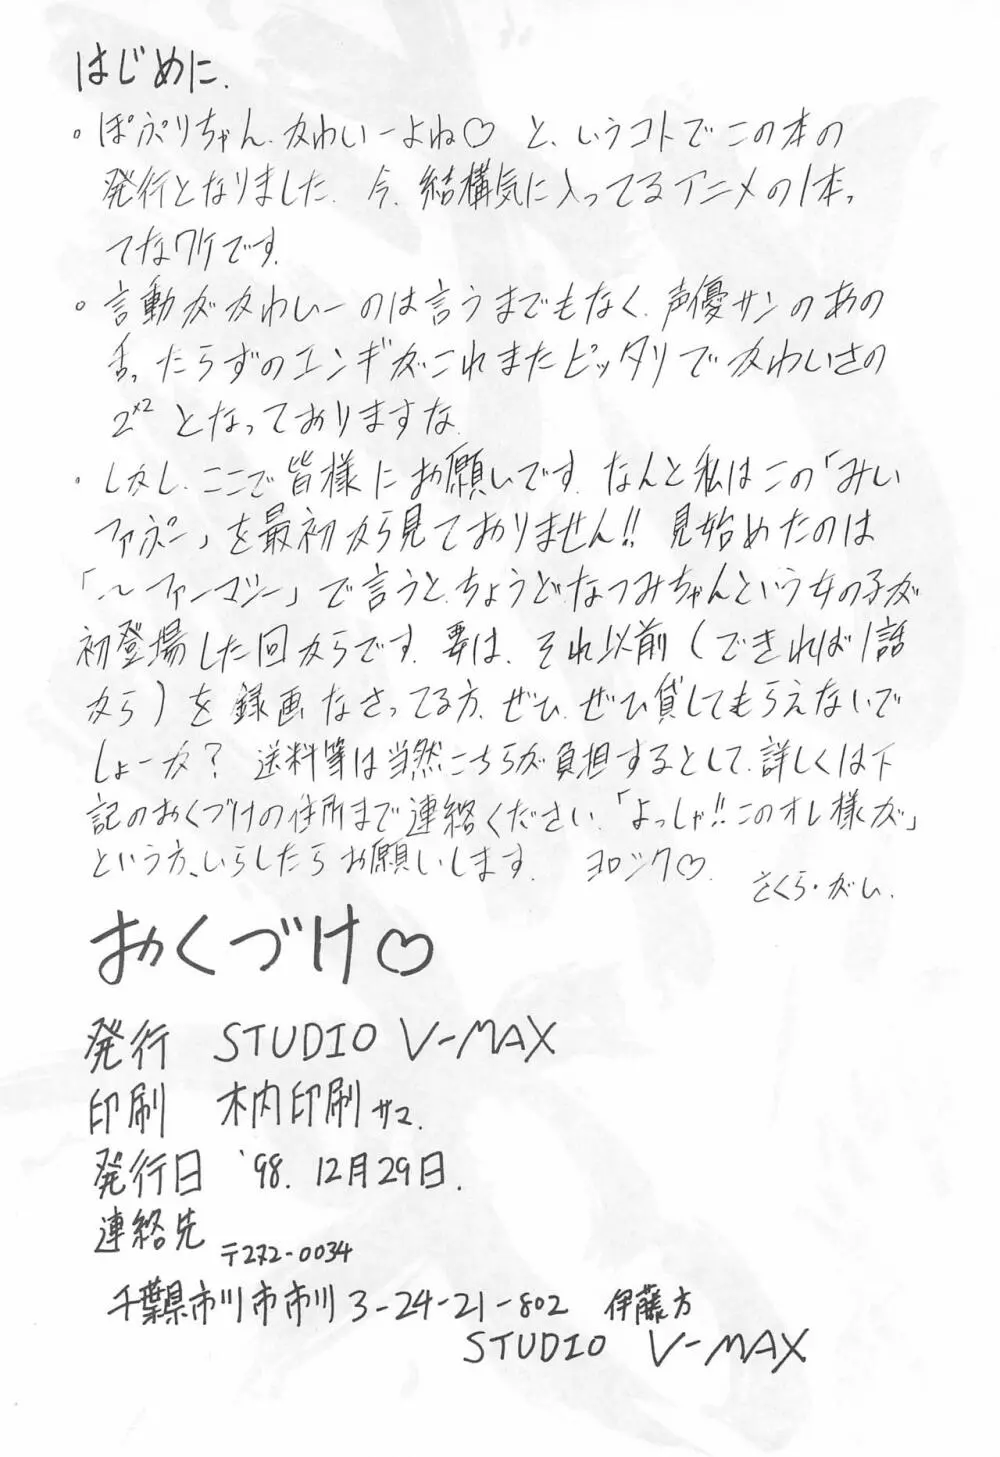 はじめに.
。ぽぷりちゃん.かわいーよね♡ と、いうコトでこの本の
発行となりました. 今、結構気に入ってるアニメの1本っ
てなワケです.
。言動がかわいーのは言うまでもなく.声優サンのあの
舌ったらずのエンギがこれまたピッタリでかわいさの
2ˣ² となっておりますな.
・しかし、ここで皆様にお願いです. なんと私はこの「みい
ファぷー」を最初から見ておりません!! 見始めたのは
「〜ファーマシー」で言うと、ちょうどなつみちゃんという女の子が
初登場した回からです. 要は、それ以前(できれば1話
から)を録画なさってる方、ぜひ、ぜひ貸してもらえないで
しょーか? 送料等は当然こちらが負担するとして、詳しくは下
記のおくづけの住所まで連絡ください.「よっしゃ!!このオレ様が」
という方、いらしたらお願いします. ヨロシク♡.
さくら・がい.
おくづけ♡
発行 STUDIO V-MAX
印刷 木内印刷サマ.
発行日 '98. 12月29日.
連絡先
〒272-0034
千葉県市川市市川3-24-21-802 伊藤方
STUDIO V-MAX